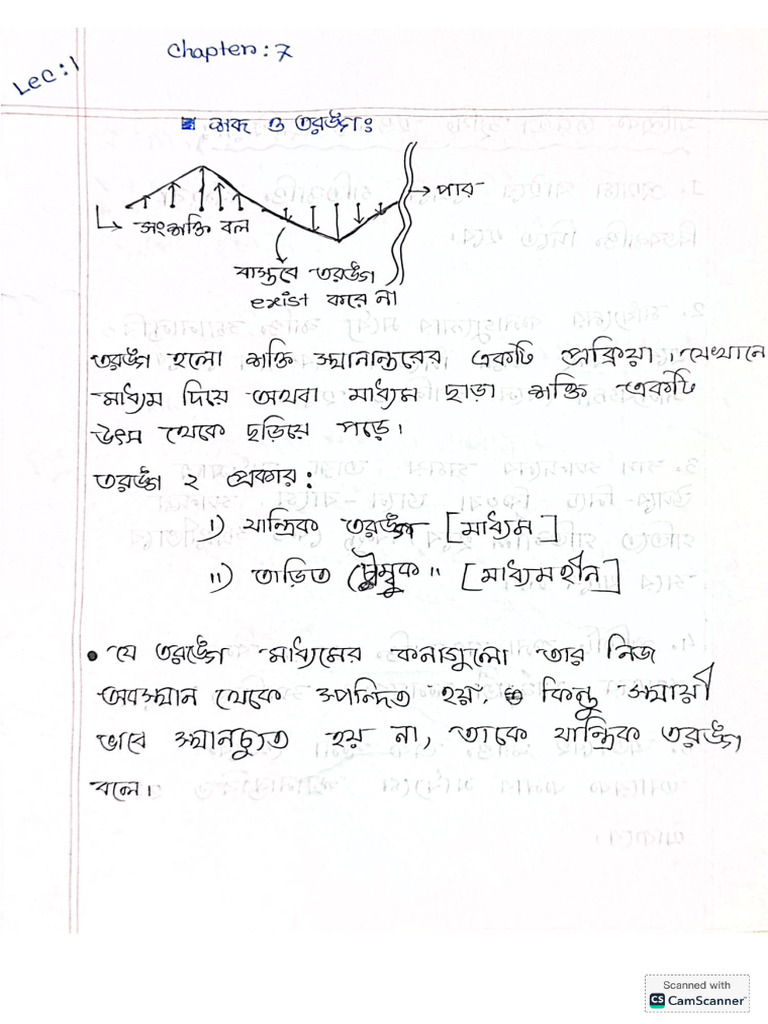 Lec:1
Chapter: 7
শব্দ ও তরঙ্গ:
→ পার
↳ সংশক্তি বল
বাস্তবে তরঙ্গ
exist করে না
তরঙ্গ হলো শক্তি স্থানান্তরের একটি প্রক্রিয়া যেখানে
মাধ্যম দিয়ে অথবা মাধ্যম ছাড়া শক্তি একটি
উৎস থেকে ছড়িয়ে পড়ে।
তরঙ্গ ২ প্রকার:
i) যান্ত্রিক তরঙ্গ [মাধ্যম]
ii) তাড়িত চৌম্বুক " [মাধ্যমহীন]
• যে তরঙ্গে মাধ্যমের কনাগুলো তার নিজ
অবস্থান থেকে স্পন্দিত হয়, কিন্তু স্থায়ী
ভাবে স্থানচ্যুত হয় না, তাকে যান্ত্রিক তরঙ্গ
বলে।
Scanned with
CS CamScanner